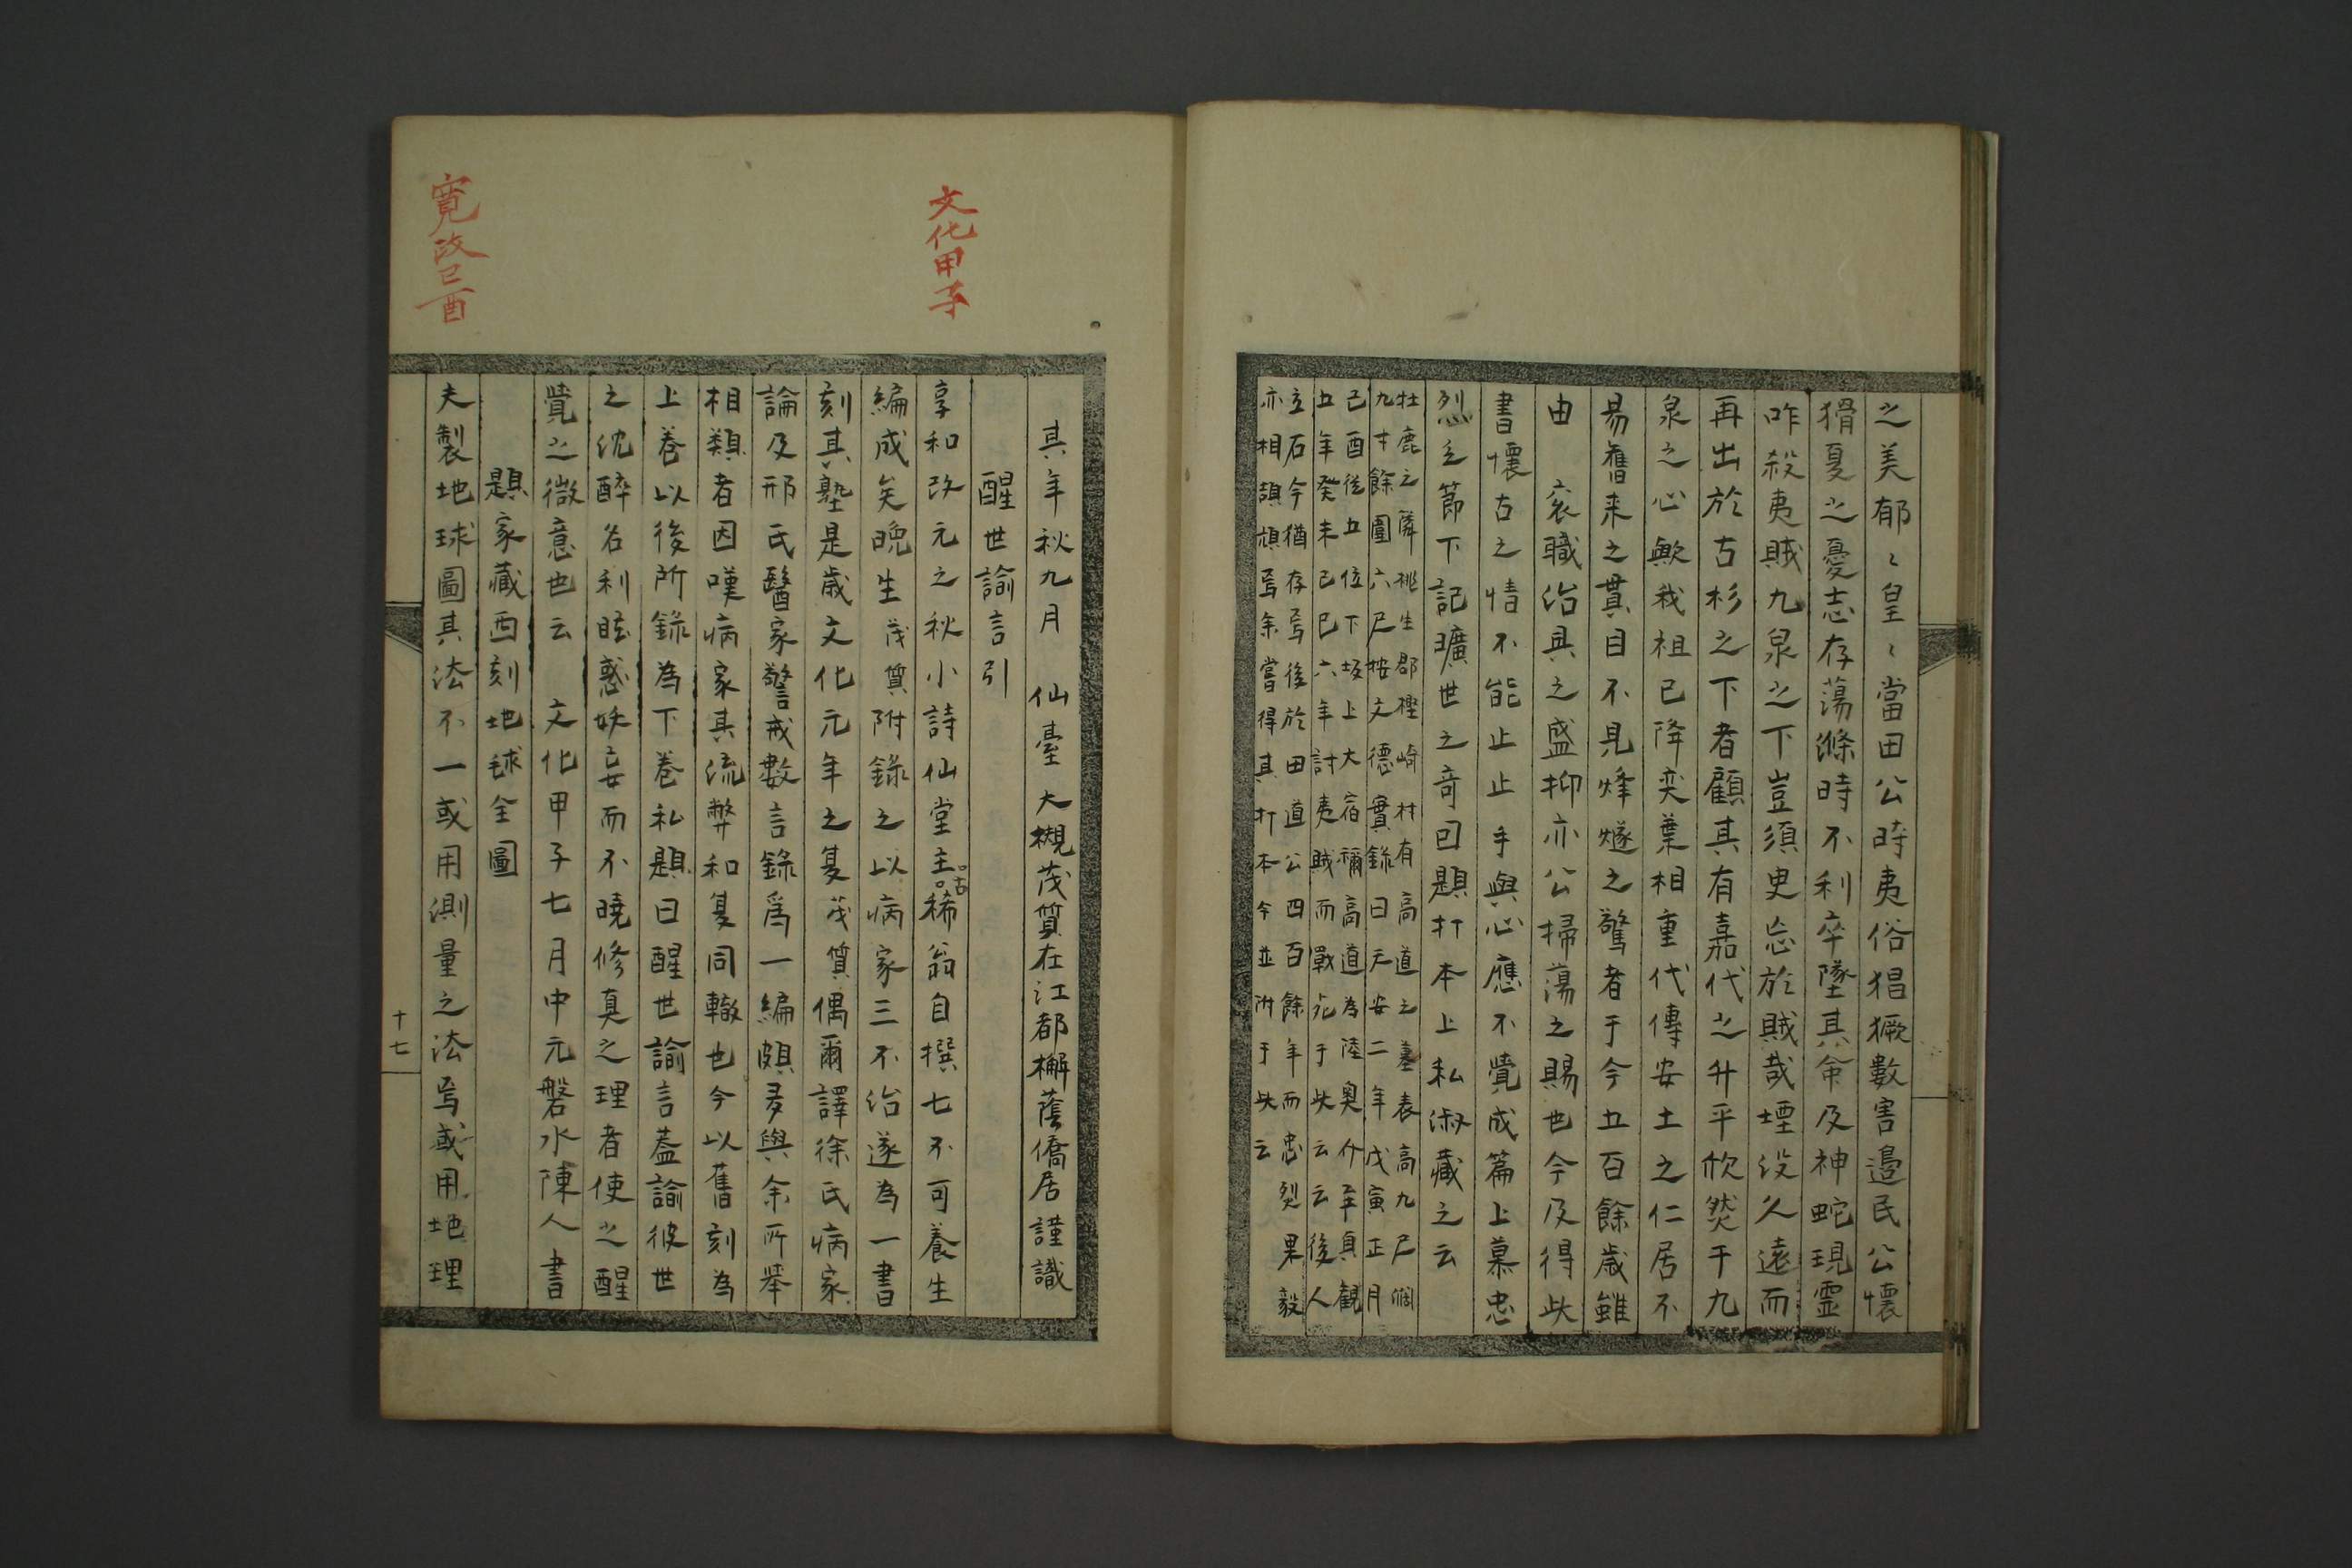 之美郁〻皇〻當田公時夷俗猖獗數害邊民公懷
猾夏之憂志存蕩滌時不利卒墜其命及神蛇現霊
咋殺夷賊九泉之下豈須臾忘於賊哉堙没久遠而
再出於古杉之下者顧其有嘉代之升平忻然于九
泉之心歟我祖已降奕葉相重代傳安土之仁居不
易舊来之貫目不見烽燧之驚者于今五百餘歳雖
由　衮職治具之盛抑亦公掃蕩之賜也今及得此
書懷古之情不能止止手與心應不覺成篇上慕忠
烈之節下記曠世之奇回題打本上私淑藏之云
牡鹿之隣桃生郡樫崎村有高道之墓表高九尺濶
九寸餘圍六尺按文德實錄曰天安二年戊寅正月
己酉從五位下坂上大宿禰高道為陸奥介至貞觀
五年癸未己巳六年討夷賊而戰死于此云云後人
立石今猶存焉後於田道公四百餘年而忠烈果毅
亦相頡頏焉余嘗得其打本今並附于此云
其年秋九月　仙臺　大槻茂質在江都櫤蔭僑居謹識
文化甲子
醒世諭言引
享和改元之秋小詩仙堂主稀古翁自撰七不可養生
編成矣晩生茂質附錄之以病家三不治遂為一書
刻其塾是歳文化元年之夏茂質偶爾譯徐氏病家
論及邢氏醫家警戒數言錄爲一編頗多與余所举
相類者因嘆病家其流弊和夏同轍也今以舊刻為
上巻以後所録為下巻私題曰醒世諭言蓋諭彼世
之沈醉名利眩惑妖妄而不曉修真之理者使之醒
覺之微意也云　文化甲子七月中元磐水陳人書
寛政己酉
題家藏西刻地球全圖
夫製地球圖其法不一或用測量之法焉或用地理
十七